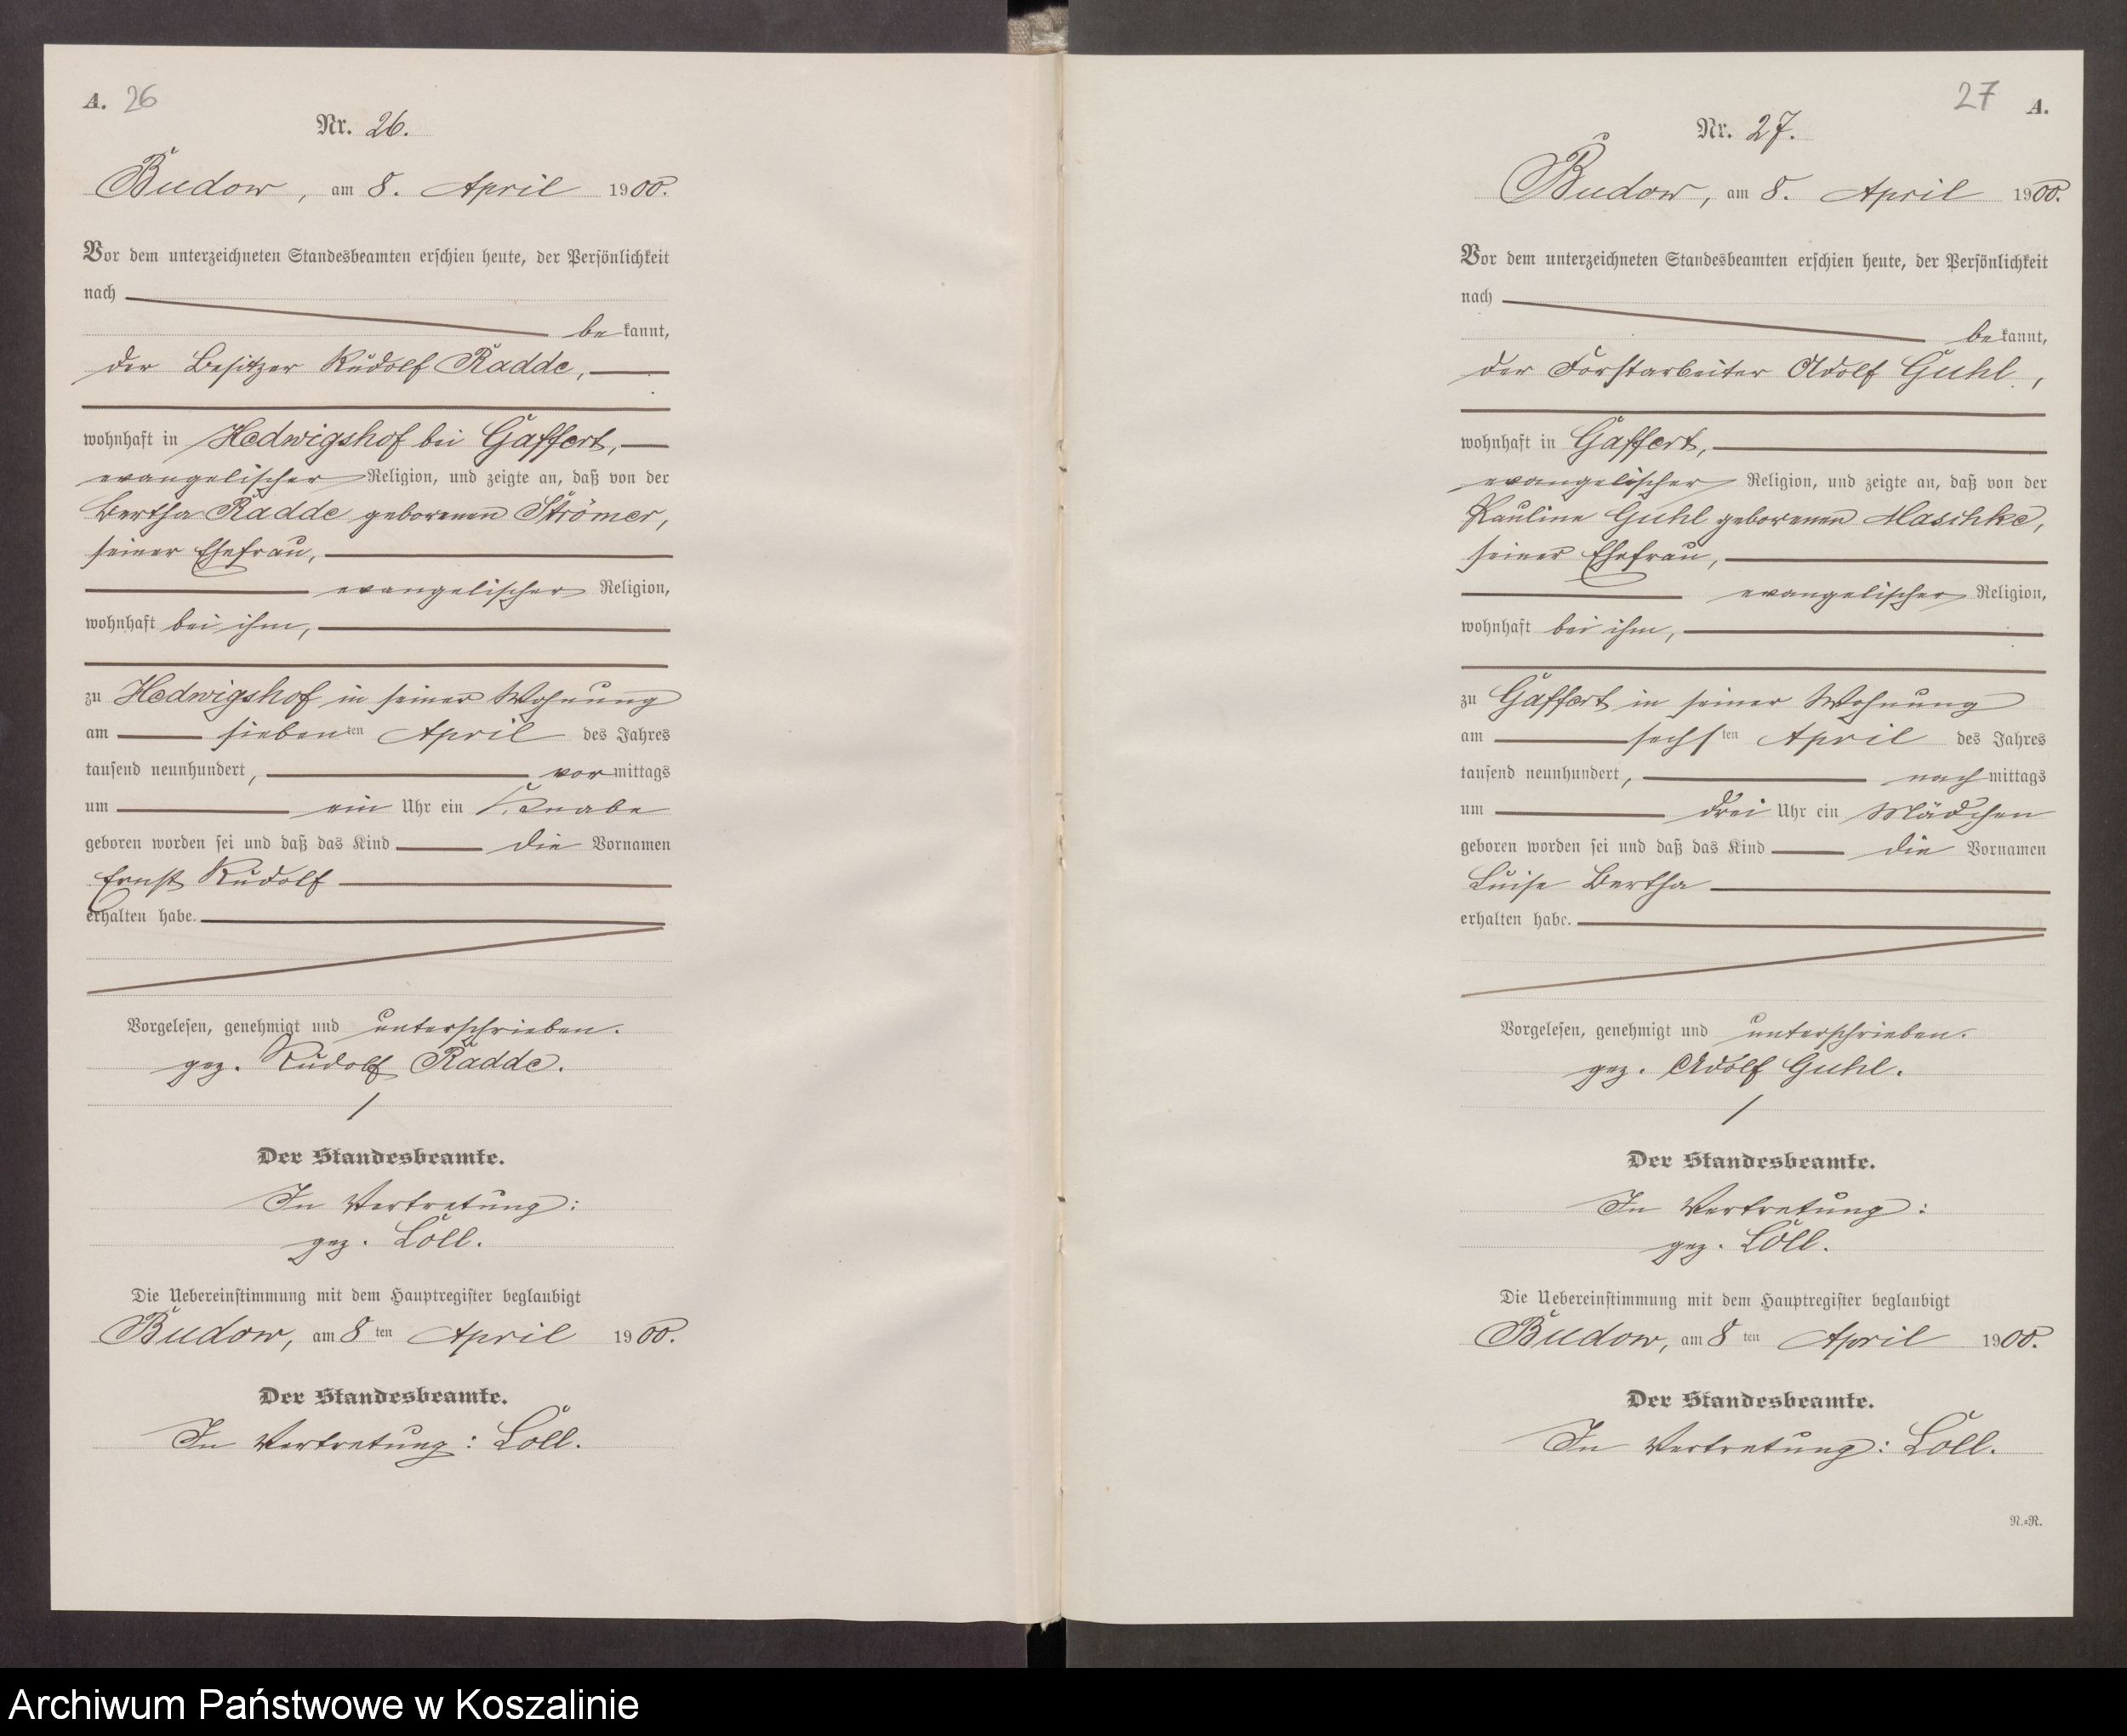 A. 26
Nr. 26.
Budow, am 8. April 1900.
Vor dem unterzeichneten Standesbeamten erschien heute, der Persönlichkeit
nach
bekannt,
der Besitzer Rudolf Radde,
wohnhaft in Hedwigshof bei Gaffert,
evangelischer Religion, und zeigte an, daß von der
Bertha Radde geborenen Strömer,
seiner Ehefrau,
evangelischer Religion,
wohnhaft bei ihm,
zu Hedwigshof in seiner Wohnung
am siebenten April des Jahres
tausend neunhundert, vormittags
um ein Uhr ein Knabe
geboren worden sei und daß das Kind die Vornamen
Ernst Rudolf
erhalten habe.
Vorgelesen, genehmigt und unterschrieben.
gez. Rudolf Radde.
Der Standesbeamte.
In Vertretung:
gez. Löll.
Die Uebereinstimmung mit dem Hauptregister beglaubigt
Budow, am 8ten April 1900.
Der Standesbeamte.
In Vertretung: Löll.
27 A.
Nr. 27.
Budow, am 8. April 1900.
Vor dem unterzeichneten Standesbeamten erschien heute, der Persönlichkeit
nach
bekannt,
der Forstarbeiter Adolf Guhl,
wohnhaft in Gaffert,
evangelischer Religion, und zeigte an, daß von der
Pauline Guhl geborenen Maschke,
seiner Ehefrau,
evangelischer Religion,
wohnhaft bei ihm,
zu Gaffert in seiner Wohnung
am sechsten April des Jahres
tausend neunhundert, nachmittags
um drei Uhr ein Mädchen
geboren worden sei und daß das Kind die Vornamen
Luise Bertha
erhalten habe.
Vorgelesen, genehmigt und unterschrieben.
gez. Adolf Guhl.
Der Standesbeamte.
In Vertretung:
gez. Löll.
Die Uebereinstimmung mit dem Hauptregister beglaubigt
Budow, am 8ten April 1900.
Der Standesbeamte.
In Vertretung: Löll.
N.=R.
Archiwum Państwowe w Koszalinie